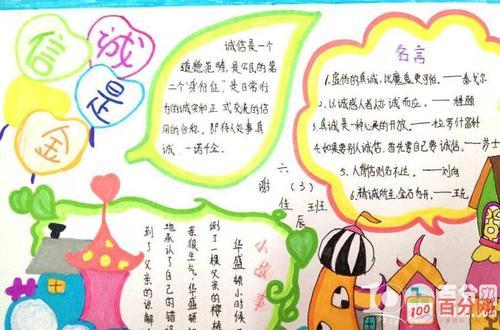 诚信
是
金
诚信是一个
道德范畴,是公民的第
二个"身份证",是日常行
为的诚实和正式交流的信
用的合称。即待人处事真
诚、一诺千金。
名言
1.虚伪的真诚,比魔鬼更可怕。——泰戈尔
2.以诚感人者,人亦诚而应。——程颐
3.真诚是一种心灵的开放。——拉罗什富科
4.如果要别人诚信,首先要自己要诚信。——莎士
5.人背信则名不达。——刘向
6.精诚所至,金石为开。——王充
六(3)班
谢佳辰
小故事
华盛顿小时候
倒了一棵父亲的樱
亲很生气,华盛顿
地承认了自己的错
到了父亲的谅解
100
百分网